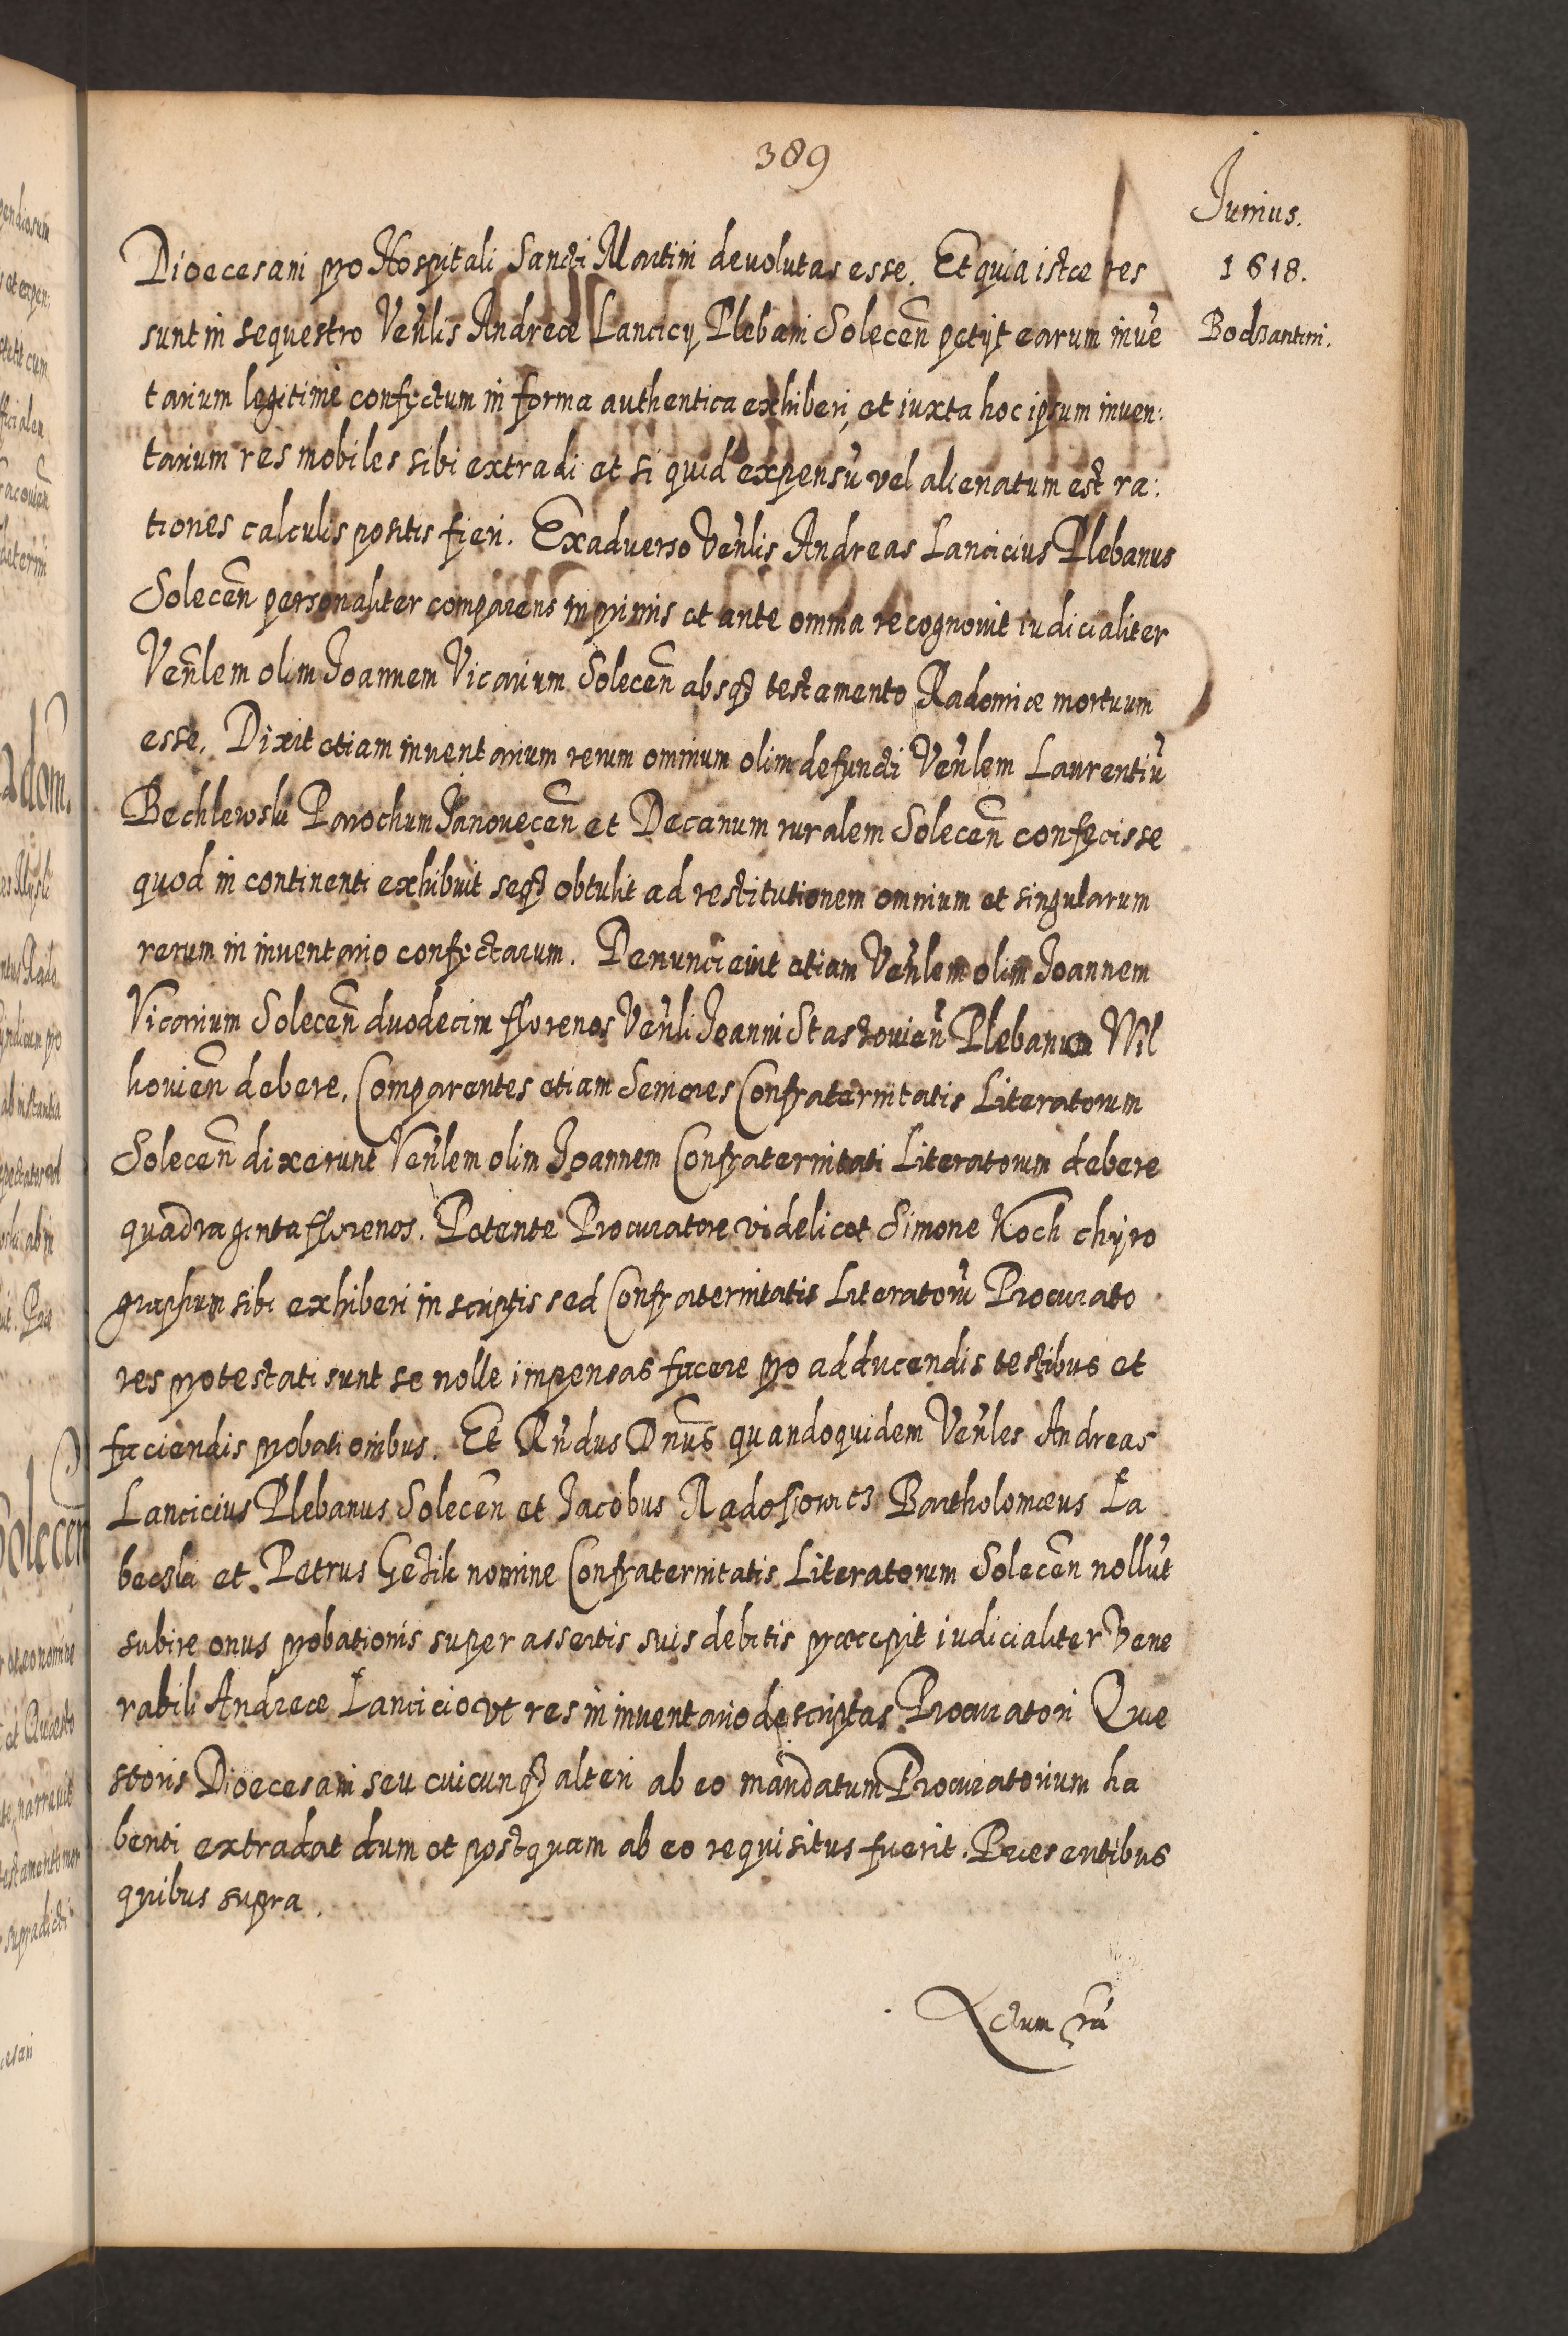 389
Junius.
1618.
Bodzantini.
Dioecesani pro Hospitali Sancti Martini devolutas esse. Et quia istae res
sunt in sequestro Venlis Andreae Lancicy Plebani Solecen petyt earum inve
tarium legitime confectum in forma authentica exhiberi, et iuxta hoc ipsum inven:
tarium res mobiles sibi extradi et si quid expensu vel alienatum est ra:
tiones calculis positis fieri. Ex adverso Venlis Andreas Lancicius Plebanus
Solecen personaliter comparens in primis et ante omnia recognovit iudicialiter
Venlem olim Joannem Vicarium Solecen absq testamento Radomiae mortuum
esse. Dixit etiam inventarium rerum omnium olim defuncti Venlem Laurentiu
Bechlewski Parochum Janovecen et Decanum ruralem Solecen confecisse
quod in continenti exhibuit seq obtulit ad restitutionem omnium et singularum
rerum in inventario confectarum. Denunciavit etiam Venlem olim Joannem
Vicarium Solecen duodecim florenos Venli Joanni Staskovien Plebano Wil
kovien debere. Comparentes etiam Seniores Confraternitatis Literatorum
Solecen dixerunt Venlem olim Joannem Confraternitati Literatorum debere
quadraginta florenos. Petente Procuratore videlicet Simone Koch chyro
graphum sibi exhiberi in scriptis sed Confraternitatis Literatoru Procurato
res protestati sunt se nolle impensas facere pro adducendis testibus et
faciendis probationibus. Et Rndus Dnus quandoquidem Venles Andreas
Lancicius Plebanus Solecen et Jacobus Radoszowicz Bartholomaeus La
beczki et Petrus Gezik nomine Confraternitatis Literatorum Solecen nollut
subire onus probationis super assertis suis debitis praecepit iudicialiter Vene
rabili Andreae Lancicio vt res in inventario descriptas Procuratori Quae
storis Dioecesani seu cuicunq alteri ab eo mandatum Procuratorium ha
benti extradat dum et postquam ab eo requisitus fuerit. Praesentibus
quibus supra.
Actum ra